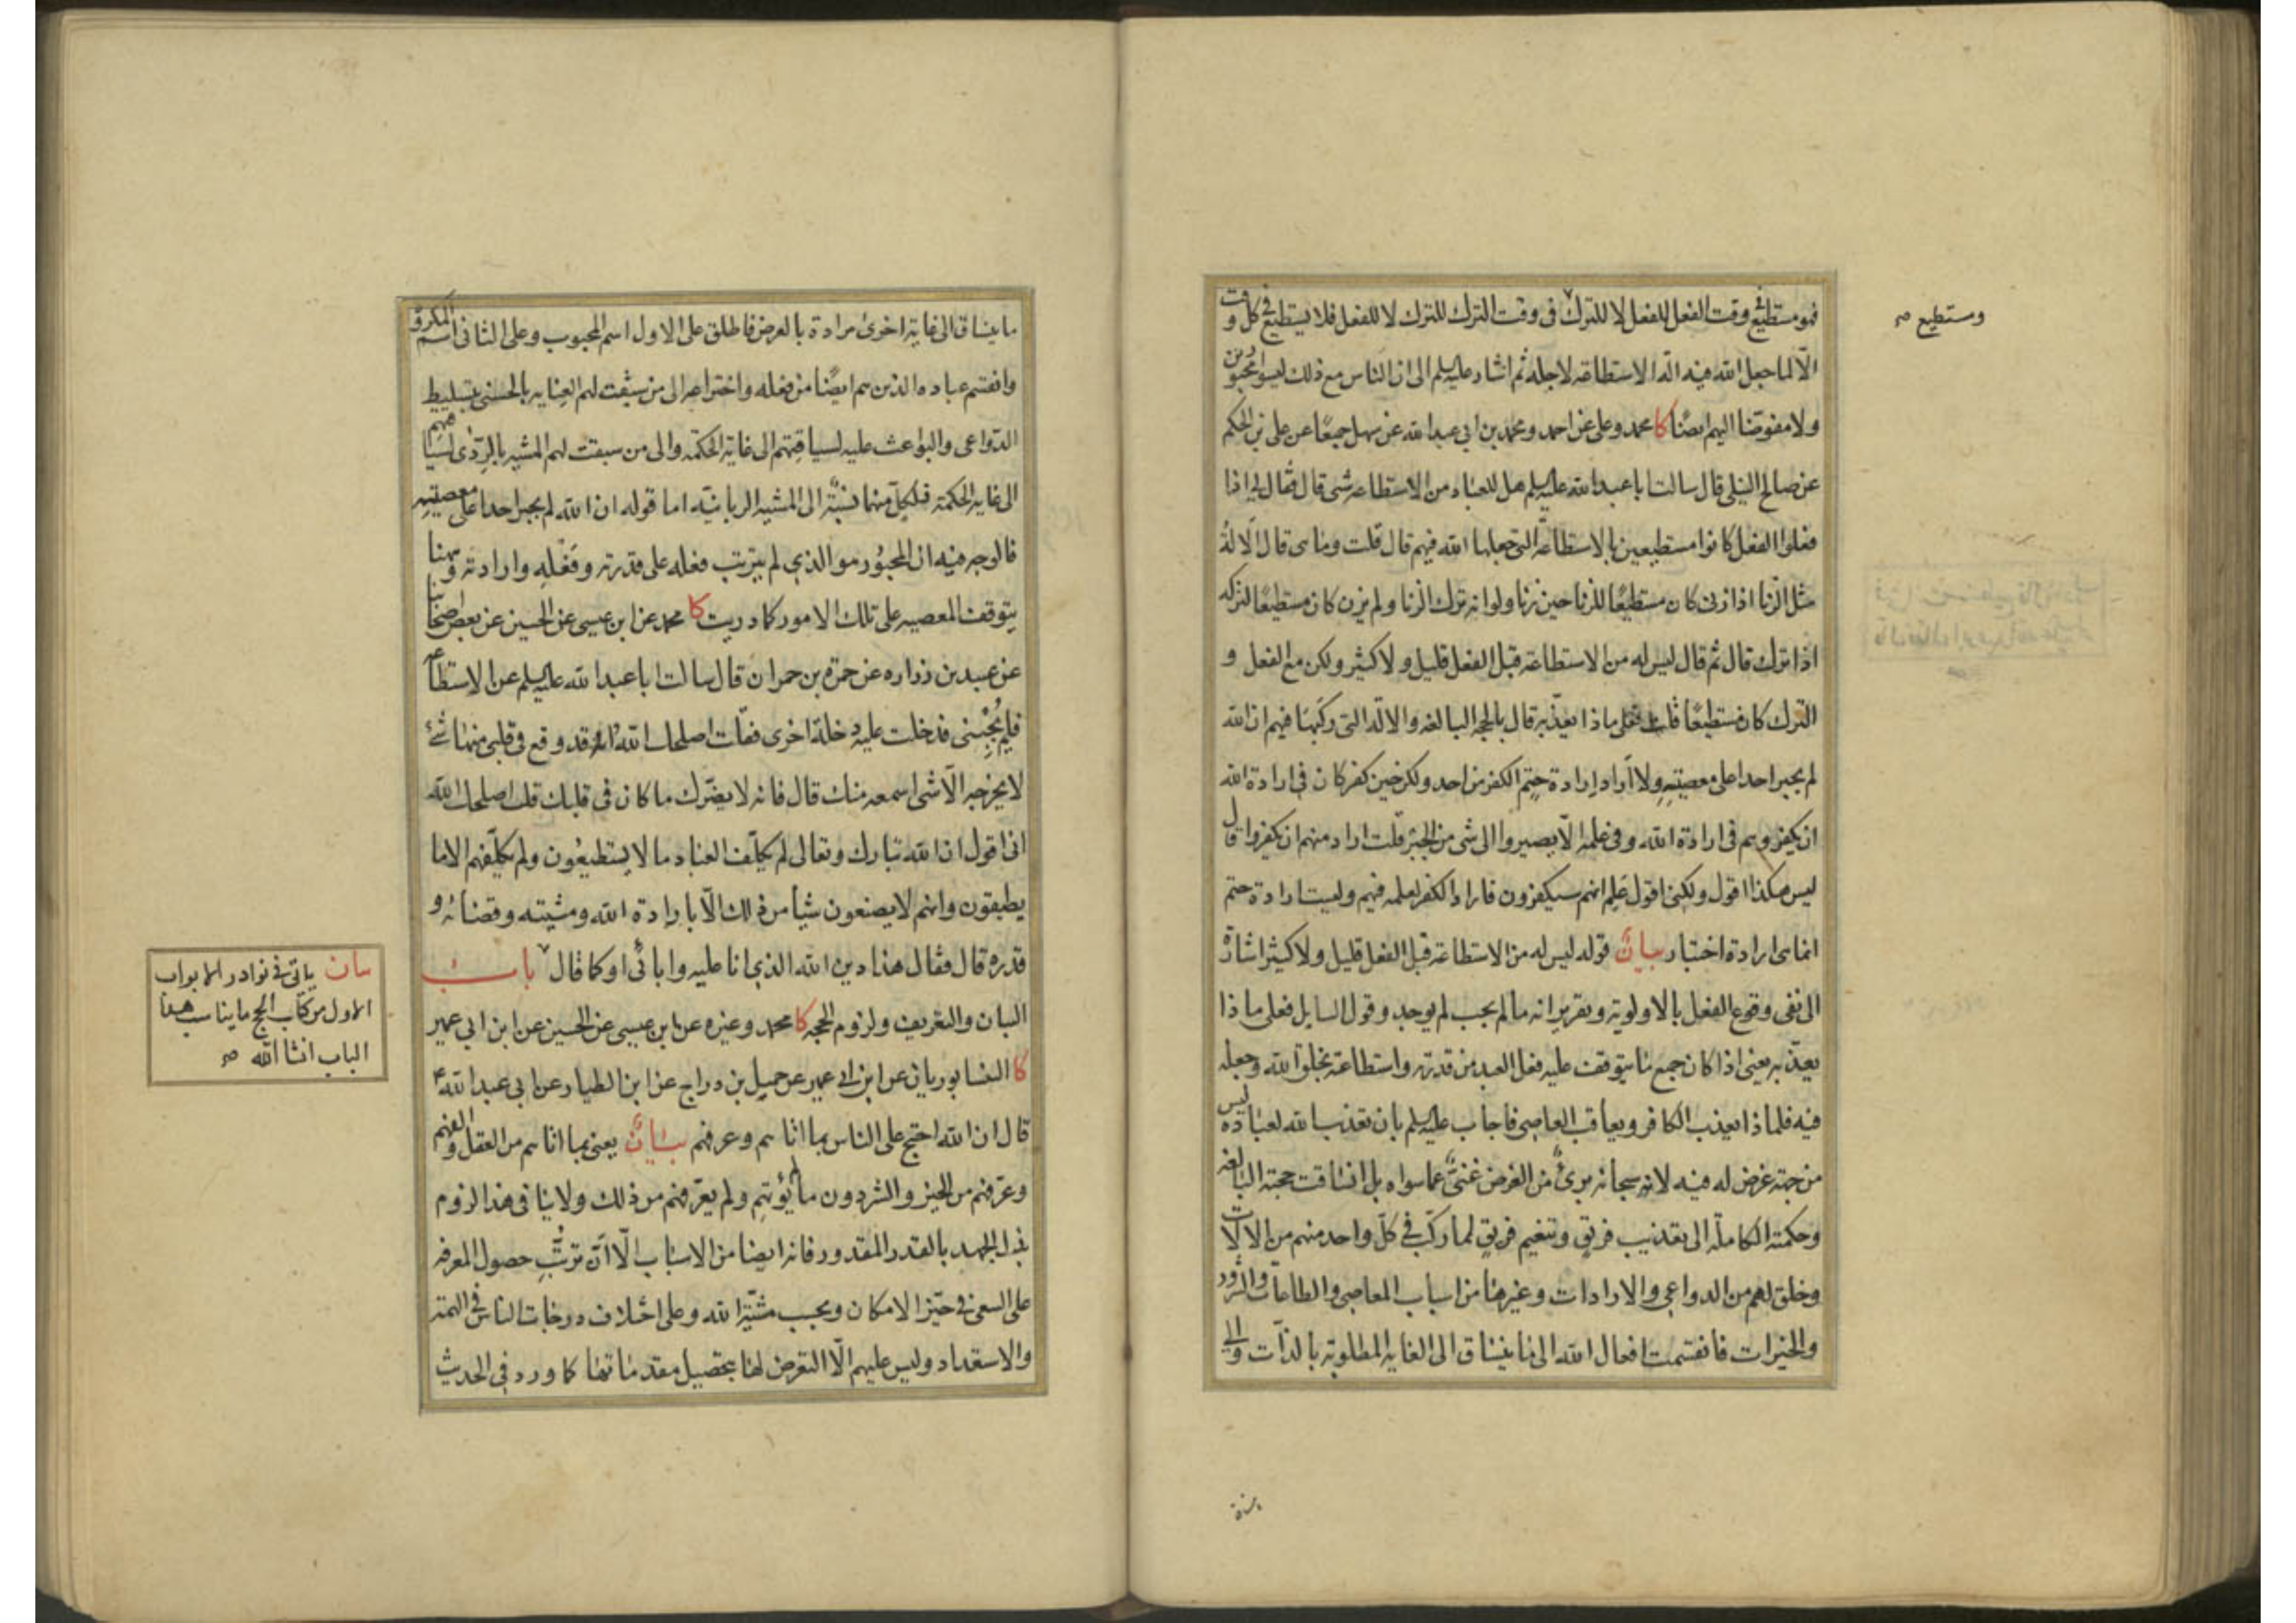 فهو مستطيع في وقت الفعل للفعل لا للترك و في وقت الترك للترك لا للفعل فلا يستطيع في كل وقت
ومستطيع صح
الا لما جعل الله فيه الة الاستطاعة لاجله ثم اشار عليه السلم الى ان الناس مع ذلك ليسوا مجبورين
ولا مفوضا اليهم ايضا كا محمد وعلى عن احمد ومحمد بن ابي عبد الله عن سهل جميعا عن على بن الحكم
عن صالح النيلى قال سالت ابا عبد الله عليه السلم هل للعباد من الاستطاعة شى قال فقال لى اذا
فعلوا الفعل كانوا مستطيعين بالاستطاعة التى جعلها الله فيهم قال قلت وما هى قال الالة
مثل الزنا اذا زنى كان مستطيعا للزنا حين زنا ولو انه ترك الزنا ولم يزن كان مستطيعا لتركه
اذا ترك قال ثم قال ليس له من الاستطاعة قبل الفعل قليل ولا كثير ولكن مع الفعل و
الترك كان مستطيعا قلت فعلى ماذا يعذبه قال بالحجة البالغة والالة التى ركبها فيهم ان الله
لم يجبر احدا على معصيته ولا اراد ارادة حتم الكفر من احد ولكن حين كفر كان فى ارادة الله
ان يكفر وهم فى ارادة الله وفى علمه الا يصيروا الى شى من الخير قلت اراد منهم ان يكفروا قال
ليس هكذا اقول ولكنى اقول علم انهم سيكفرون فاراد الكفر لعلمه فيهم وليست ارادة حتم
انما هى ارادة اختيار بيان قوله ليس له من الاستطاعة قبل الفعل قليل ولا كثير اشارة
الى نفى وقوع الفعل بالاولوية وتقرير انه ما لم يجب لم يوجد وقول السايل فعلى ماذا
يعذبه يعنى اذا كان جميع ما يتوقف عليه فعل العبد من قدرته واستطاعته بخلق الله وجعله
فيه فلماذا يعذب الكافر ويعاقب العاصى فاجاب عليه السلم بان تعذيب الله لعباده ليس
من جهة غرض له فيه لانه سبحانه برئ من الغرض غنى عما سواه بل انساقت حجته البالغة
وحكمته الكاملة الى تعذيب فريق وتنعيم فريق لما ركب فى كل واحد منهم من الالات
وخلق لهم من الدواعى والارادات وغيرها من اسباب المعاصى والطاعات والشرور
والخيرات فانقسمت افعال الله الى ما ينساق الى الغاية المطلوبة بالذات والى
ما ينساق الى غاية اخرى مرادة بالعرض فاطلق على الاول اسم المحبوب وعلى الثانى اسم المكروه
وانقسم عباده الذين هم ايضا من فعله واختراعه الى من سبقت لهم العناية بالحسنى بتسليط
الدواعى والبواعث عليه لسياقتهم الى غاية الحكمة والى من سبقت لهم المشية بالردى لسياقهم
الى غاية الحكمة فلكل منهما نسبة الى المشية الربانية اما قوله ان الله لم يجبر احدا على معصيته
فالوجه فيه ان المجبور هو الذى لم يترتب فعله على قدرته وفعله وارادته وههنا
يتوقف المعصية على تلك الامور كما دريت كا محمد عن ابن عيسى عن الحسين عن بعض اصحابنا
عن عبيد بن زرارة عن حمزة بن حمران قال سالت ابا عبد الله عليه السلم عن الاستطاعة
فلم يجبنى فدخلت عليه دخلة اخرى فقلت اصلحك الله انه قد وقع فى قلبى منها شئ
لا يخرجه الا شى اسمعه منك قال فانه لا يضرك ما كان فى قلبك قلت اصلحك الله
انى اقول ان الله تبارك وتعالى لم يكلف العباد ما لا يستطيعون ولم يكلفهم الا ما
يطيقون وانهم لا يصنعون شيا من ذلك الا بارادة الله ومشيته وقضائه و
قدره قال فقال هذا دين الله الذى انا عليه وابائى او كما قال باب
البيان والتعريف ولزوم الحجة كا محمد وغيره عن ابن عيسى عن الحسين عن ابن ابى عمير
كا النيسابوريان عن ابن ابى عمير عن جميل بن دراج عن ابن الطيار عن ابى عبد الله ع
قال ان الله احتج على الناس بما اتاهم وعرفهم بيان يعنى بما اتاهم من العقل والفهم
وعرفهم من الخير والشر دون ما لم يؤتهم ولم يعرفهم من ذلك ولا ينافى هذا لزوم
بذل الجهد بالقدر المقدور فانه ايضا من الاسباب الا ان ترتب حصول المعرفة
على السعى فى حيز الامكان وبحسب مشية الله وعلى اختلاف درجات الناس فى الهمة
والاستعداد وليس عليهم الا التعرض لها بتحصيل مقدماتها كما ورد فى الحديث
بيان ياتى فى نوادر الابواب
الاول من كتاب الحج ما يناسب هذا
الباب انشا الله صح